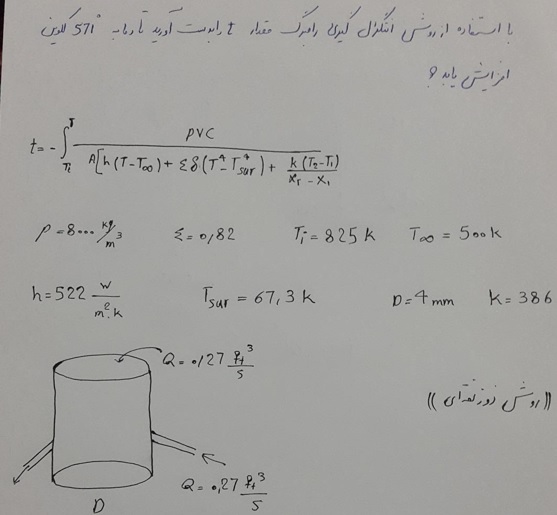 با استفاده از روش انتگرال گیری رامبرگ مقدار t را بدست آورید تا دما به 571° کلوین
افزایش یابد؟
t = - ∫_{Ti}^{T} ρVC / A[h(T-T∞) + Ɛδ(T⁴-T⁴sur) + k(T2-T1) / XT - X1
ρ = 8000 kg/m³ Ɛ = 0,82 Ti = 825 k T∞ = 500 k
h = 522 w/m².k Tsur = 67,3 k D = 4 mm k = 386
Q = 0,27 ft³/s
((روش ذوزنقه ای))
Q = 0,27 ft³/s
D